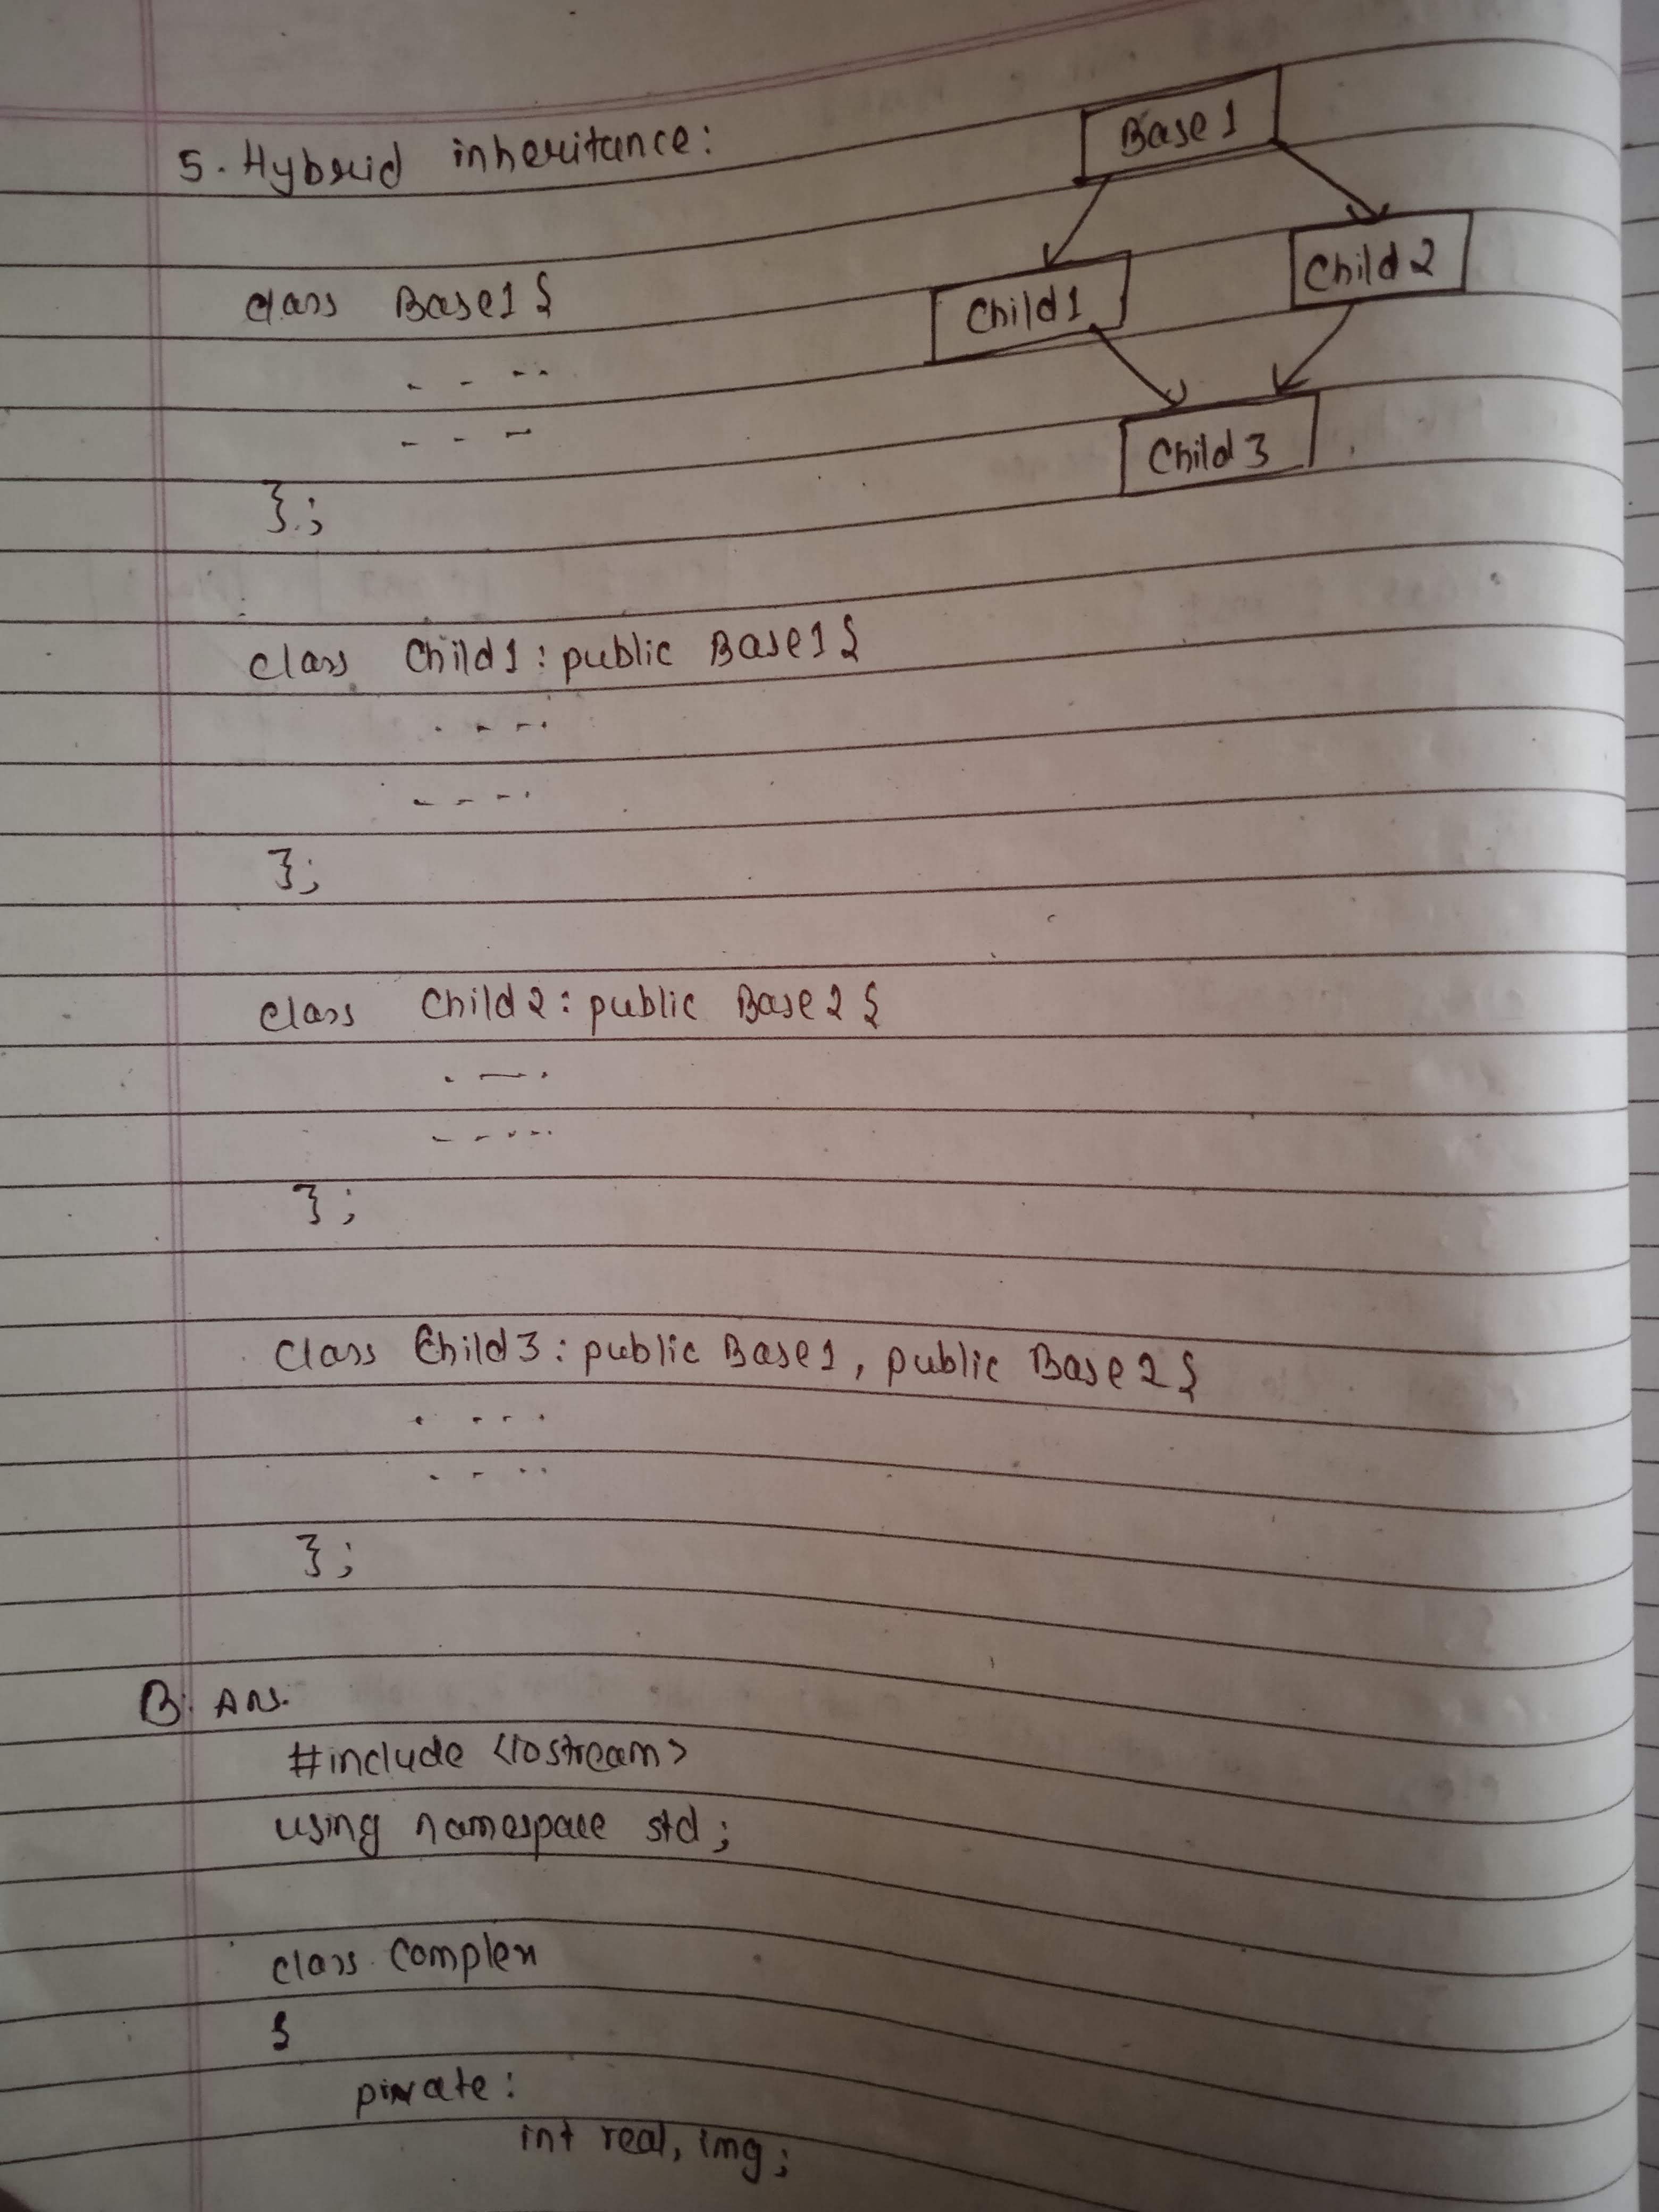 5. Hybrid inheritance:
Base 1
Child 1
Child 2
Child 3
class Base1 {
- - - -
- - -
};
class Child1 : public Base1 {
- - - -
- - - -
};
class Child2 : public Base2 {
- - -
- - - -
};
class Child3 : public Base1, public Base2 {
- - - -
- - - -
};
B. Ans.
#include <iostream>
using namespace std;
class Complex
{
private:
int real, img;